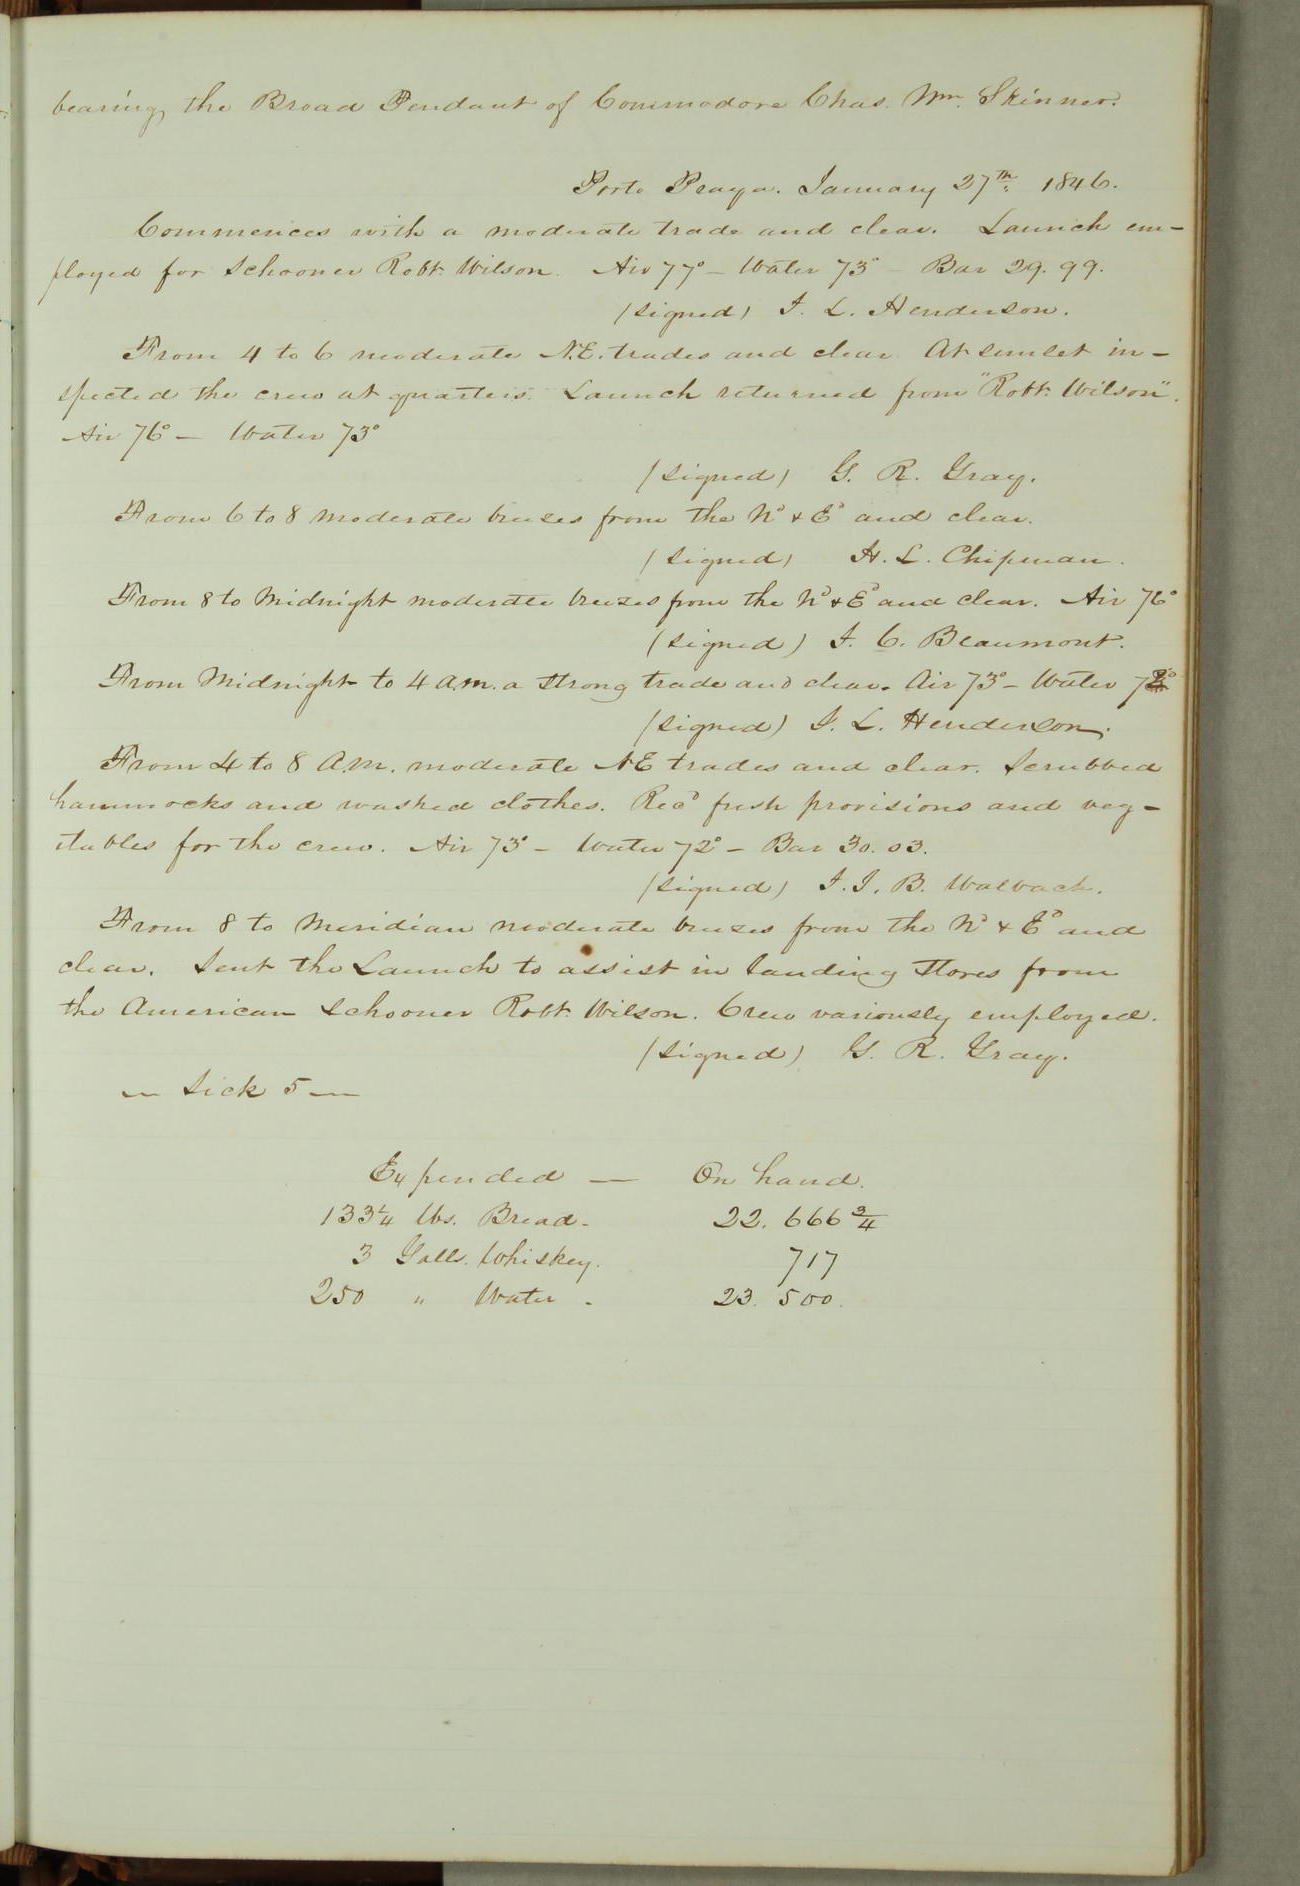 bearing, the Broad Pendant of Commodore Chas. Wm. Skinner.
Porto Praya. January 27th. 1846.
Commences with a moderate trade and clear. Launch em-
ployed for Schooner Robt. Wilson. Air 77° - Water 73° - Bar 29.99.
(signed) J. L. Henderson.
From 4 to 6 moderate N.E. trades and clear. At sunset in-
spected the crew at quarters. Launch returned from "Robt. Wilson".
Air 76° - Water 73°
(signed) G. R. Gray.
From 6 to 8 moderate breezes from the Nd & Ed and clear.
(signed) H. L. Chipman.
From 8 to Midnight moderate breezes from the Nd & Ed and clear. Air 76°
(signed) J. C. Beaumont.
From Midnight to 4 a.m. a strong trade and clear. Air 73° - Water 72°
(signed) J. L. Henderson.
From 4 to 8 A.M. moderate NE trades and clear. Scrubbed
hammocks and washed clothes. Recd fresh provisions and veg-
etables for the crew. Air 73° - Water 72° - Bar 30.03.
(signed) J. J. B. Walback.
From 8 to Meridian moderate breezes from the Nd & Ed and
clear. Sent the Launch to assist in landing stores from
the American Schooner Robt. Wilson. Crew variously employed.
(signed) G. R. Gray.
— Sick 5 —
Expended — On hand.
133 1/4 lbs. Bread - 22.666 3/4
3 Galls. Whiskey. 717
250 " Water - 23.500.